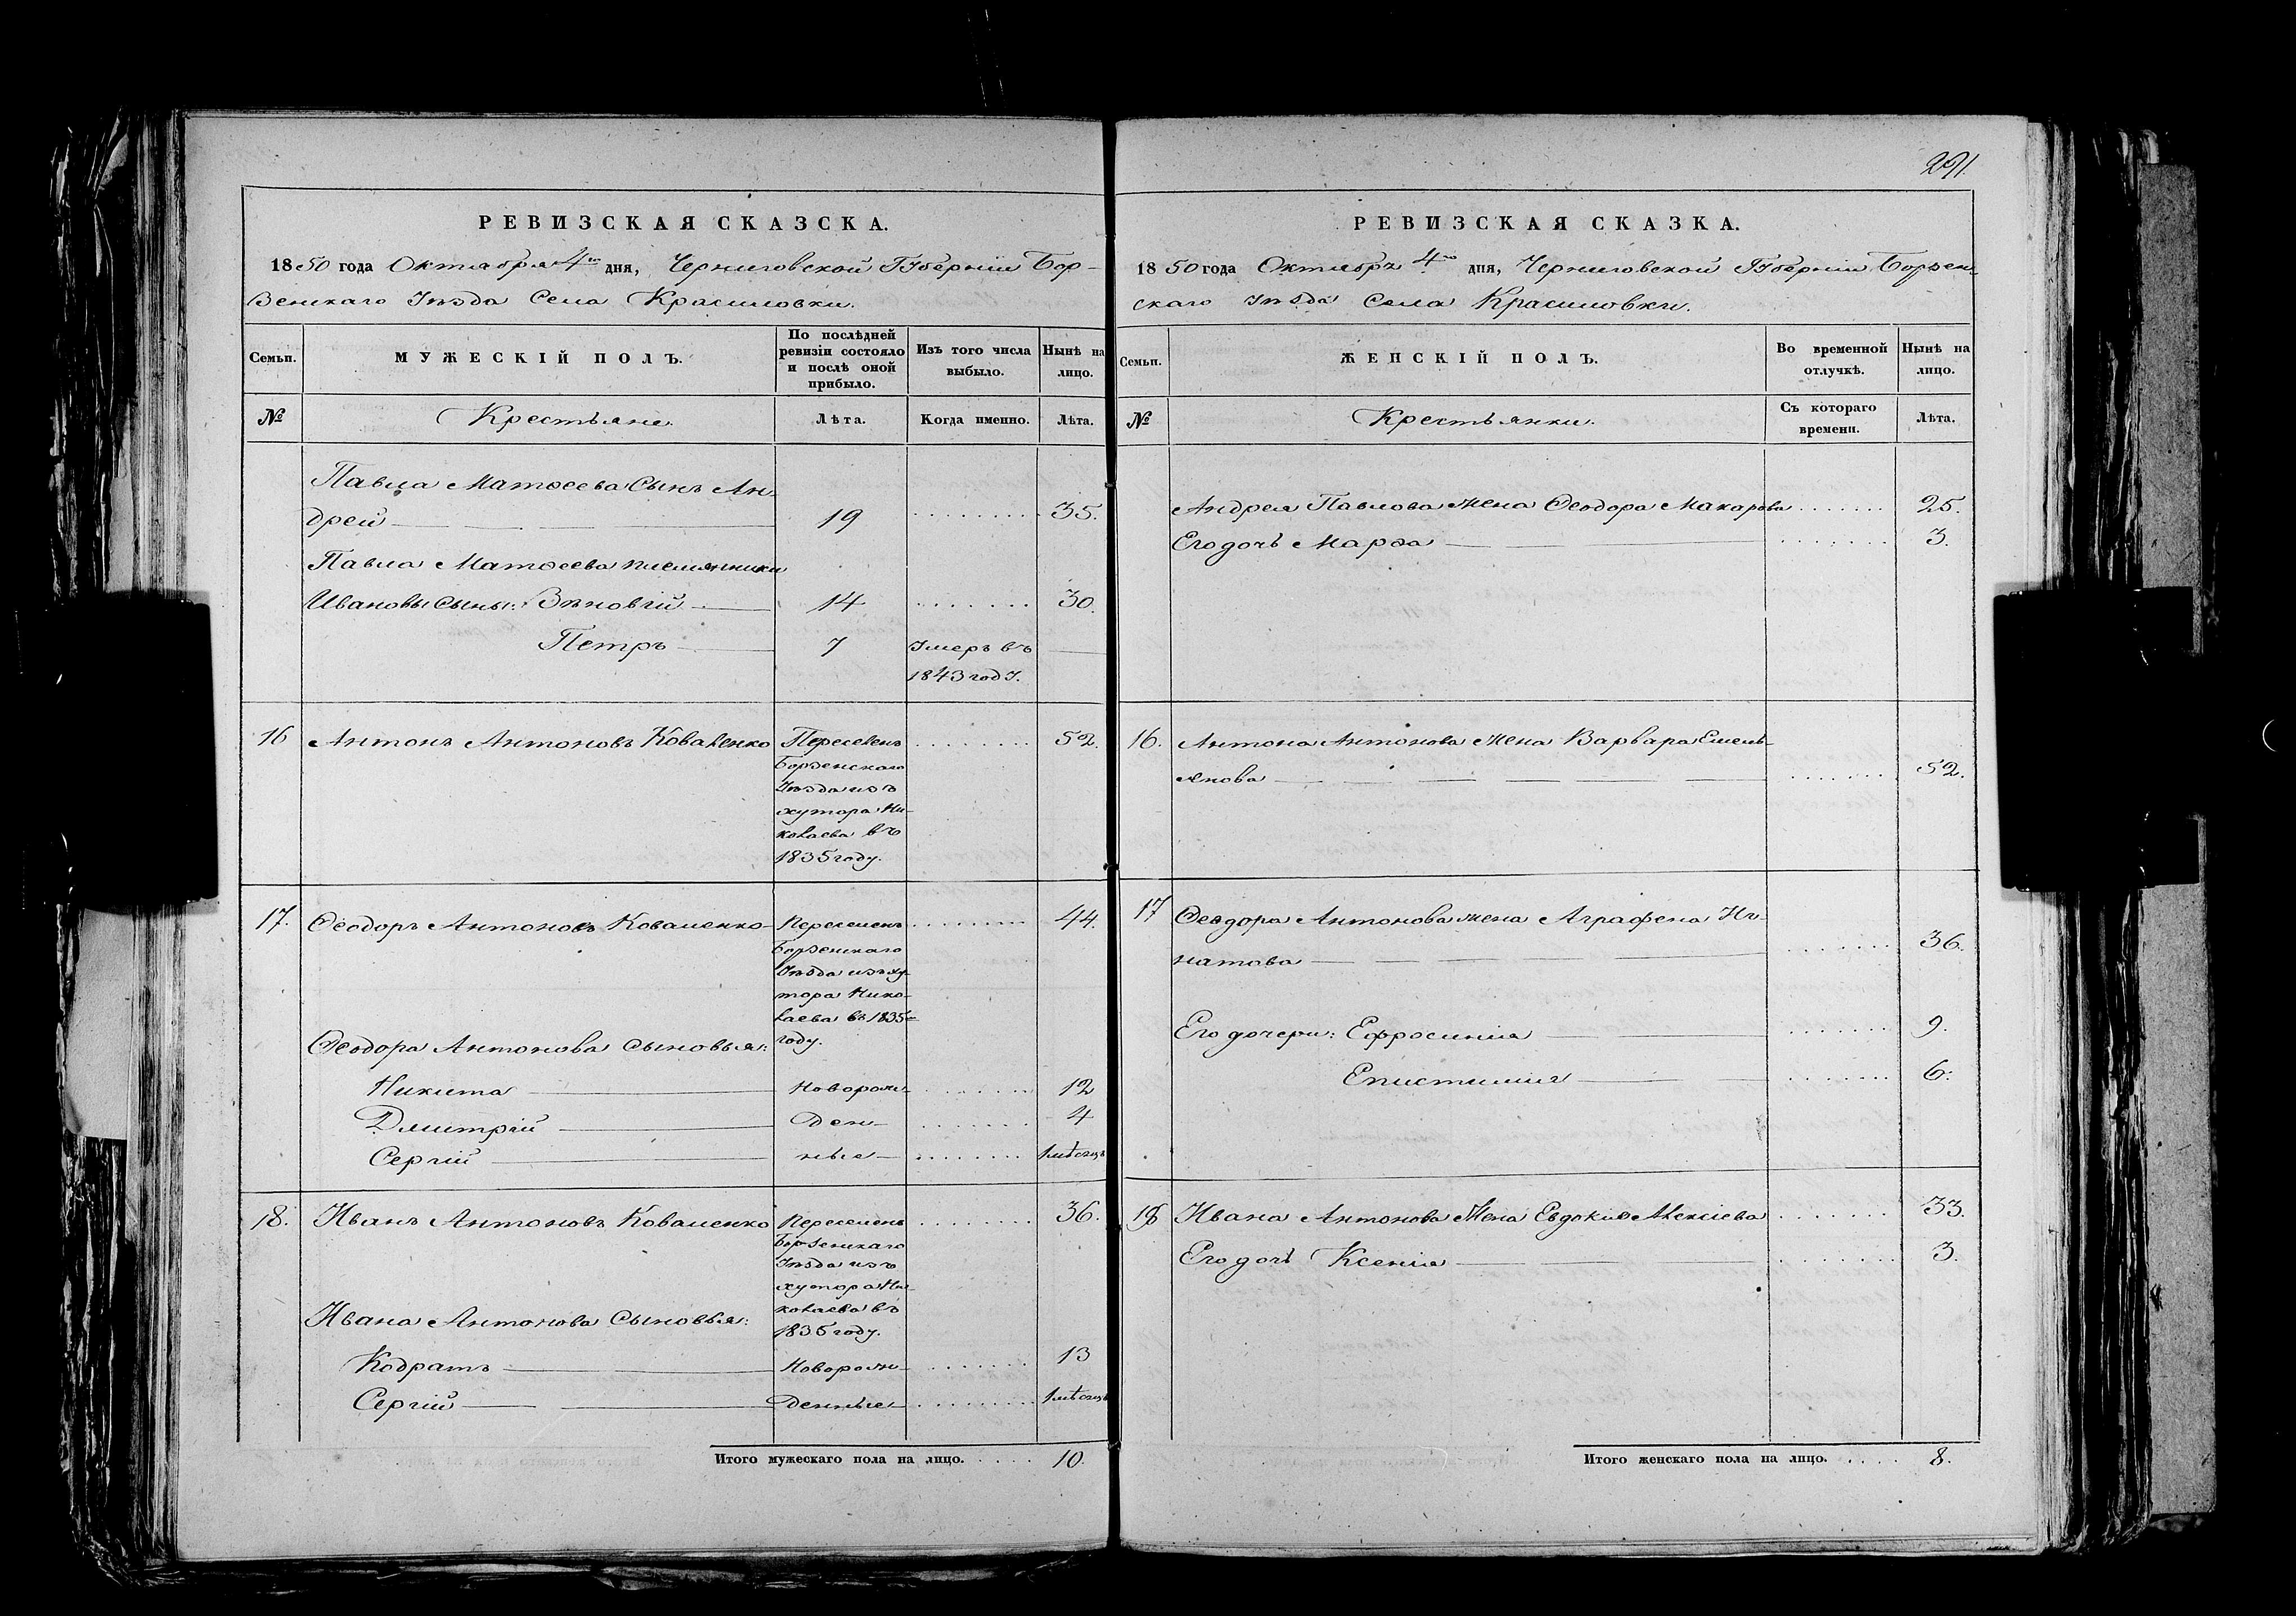 РЕВИЗСКАЯ СКАЗСКА.
1850 года Октября 4го дня, Черниговской Губерніи Бор-
зенскаго Уѣзда Села Красиловки.
Семьи.
МУЖЕСКІЙ ПОЛЪ.
По послѣдней
ревизіи состояло
и послѣ оной
прибыло.
Изъ того числа
выбыло.
Нынѣ на
лицо.
№
Крестьяне.
Лѣта.
Когда именно.
Лѣта.
Павла Матвеева Сынъ Ан-
дрей 19 35.
Павла Матвеева племянники
Ивановы Сыны: Зѣновій 14 30.
Петръ 7 Умеръ въ
1843 году.
16 Антонъ Антоновъ Коваленко Переселенъ 52.
Борзенскаго
Уѣзда изъ
хутора Ни-
колаева въ
1835 году.
17. Ѳеодоръ Антоновъ Коваленко Переселенъ 44.
Борзенскаго
Уѣзда изъ ху-
тора Нико-
лаева въ 1835м
году.
Ѳеодора Антонова сыновья:
Никита Новорож- 12
Дмитрій ден- 4
Сергій ные 1 мѣсяцъ
18. Иванъ Антоновъ Коваленко Переселенъ 36.
Борзенскаго
Уѣзда изъ
хутора Ни-
колаева въ
1835 году.
Ивана Антонова Сыновья:
Кодратъ Новорож- 13
Сергій денные 1 мѣсяцъ
Итого мужескаго пола на лицо. 10.
291.
РЕВИЗСКАЯ СКАЗКА.
1850 года Октября 4го дня, Черниговской Губерніи Борзен-
скаго уѣзда Села Красиловки.
Семьи.
ЖЕНСКІЙ ПОЛЪ.
Во временной
отлучкѣ.
Нынѣ на
лицо.
№
Крестьянки.
Съ котораго
времени.
Лѣта.
Андрея Павлова жена Ѳеодора Макарова 25.
Его дочь Марѳа 3.
16. Антона Антонова жена Варвара Емель-
янова 52.
17 Ѳеодора Антонова жена Аграфена Иг-
натова 36.
Его дочери: Ефросинія 9.
Епистимія 6.
18 Ивана Антонова Жена Евдокія Алексіева 33.
Его дочь Ксенія 3.
Итого женскаго пола на лицо. 8.